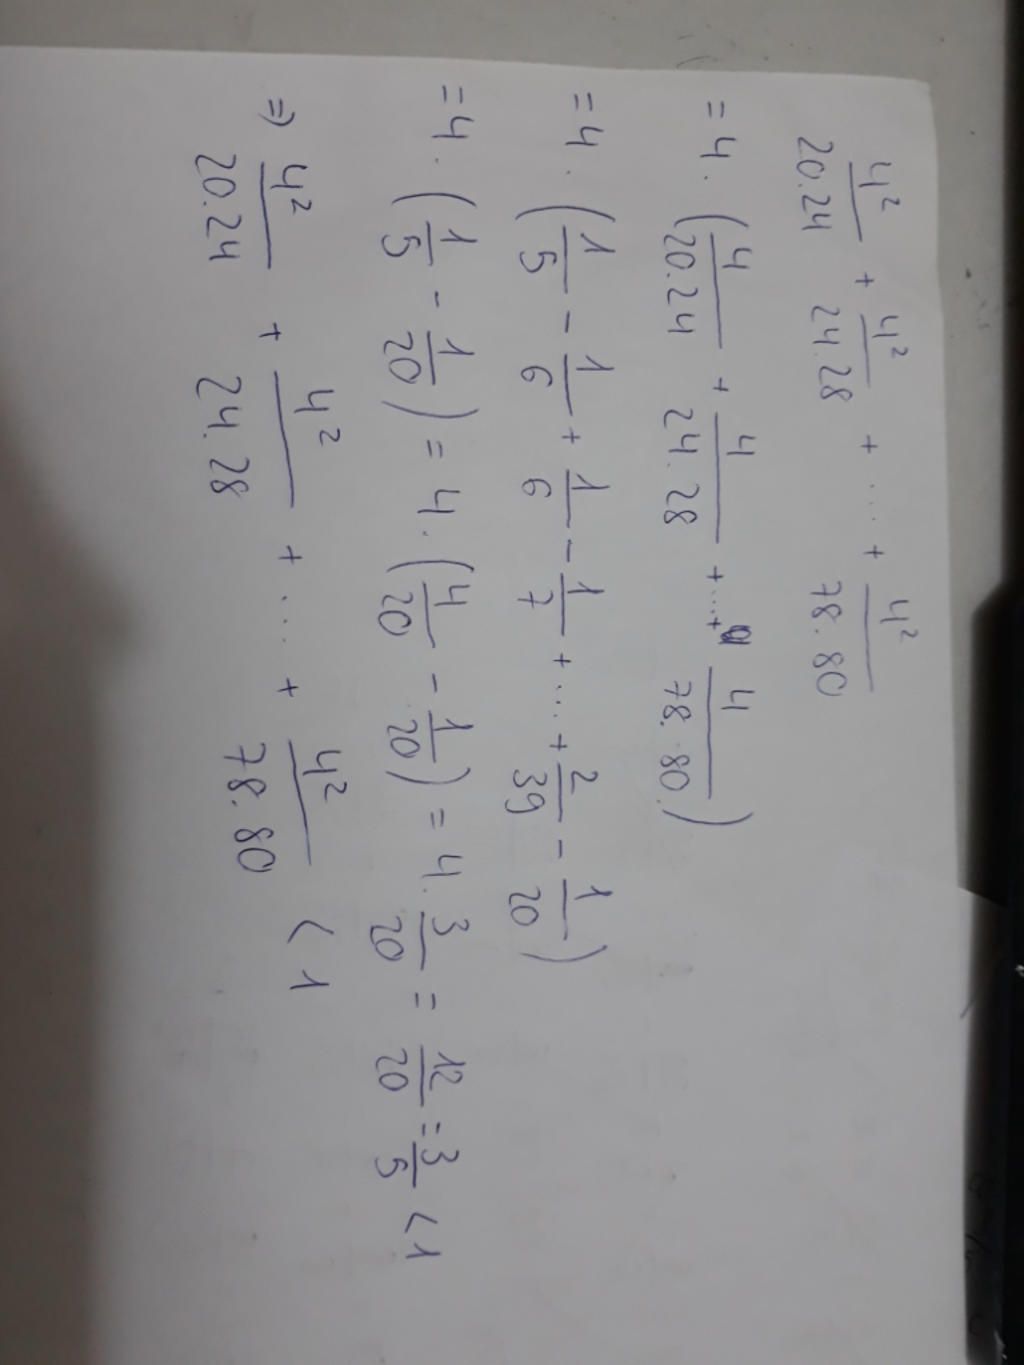 4²/20.24 + 4²/24.28 + ... + 4²/78.80
= 4. (4/20.24 + 4/24.28 + ...+ 4/78.80.)
= 4. (1/5 - 1/6 + 1/6 - 1/7 + ... + 2/39 - 1/20)
= 4. (1/5 - 1/20) = 4. (4/20 - 1/20) = 4. 3/20 = 12/20 = 3/5 < 1
=> 4²/20.24 + 4²/24.28 + ... + 4²/78.80 < 1